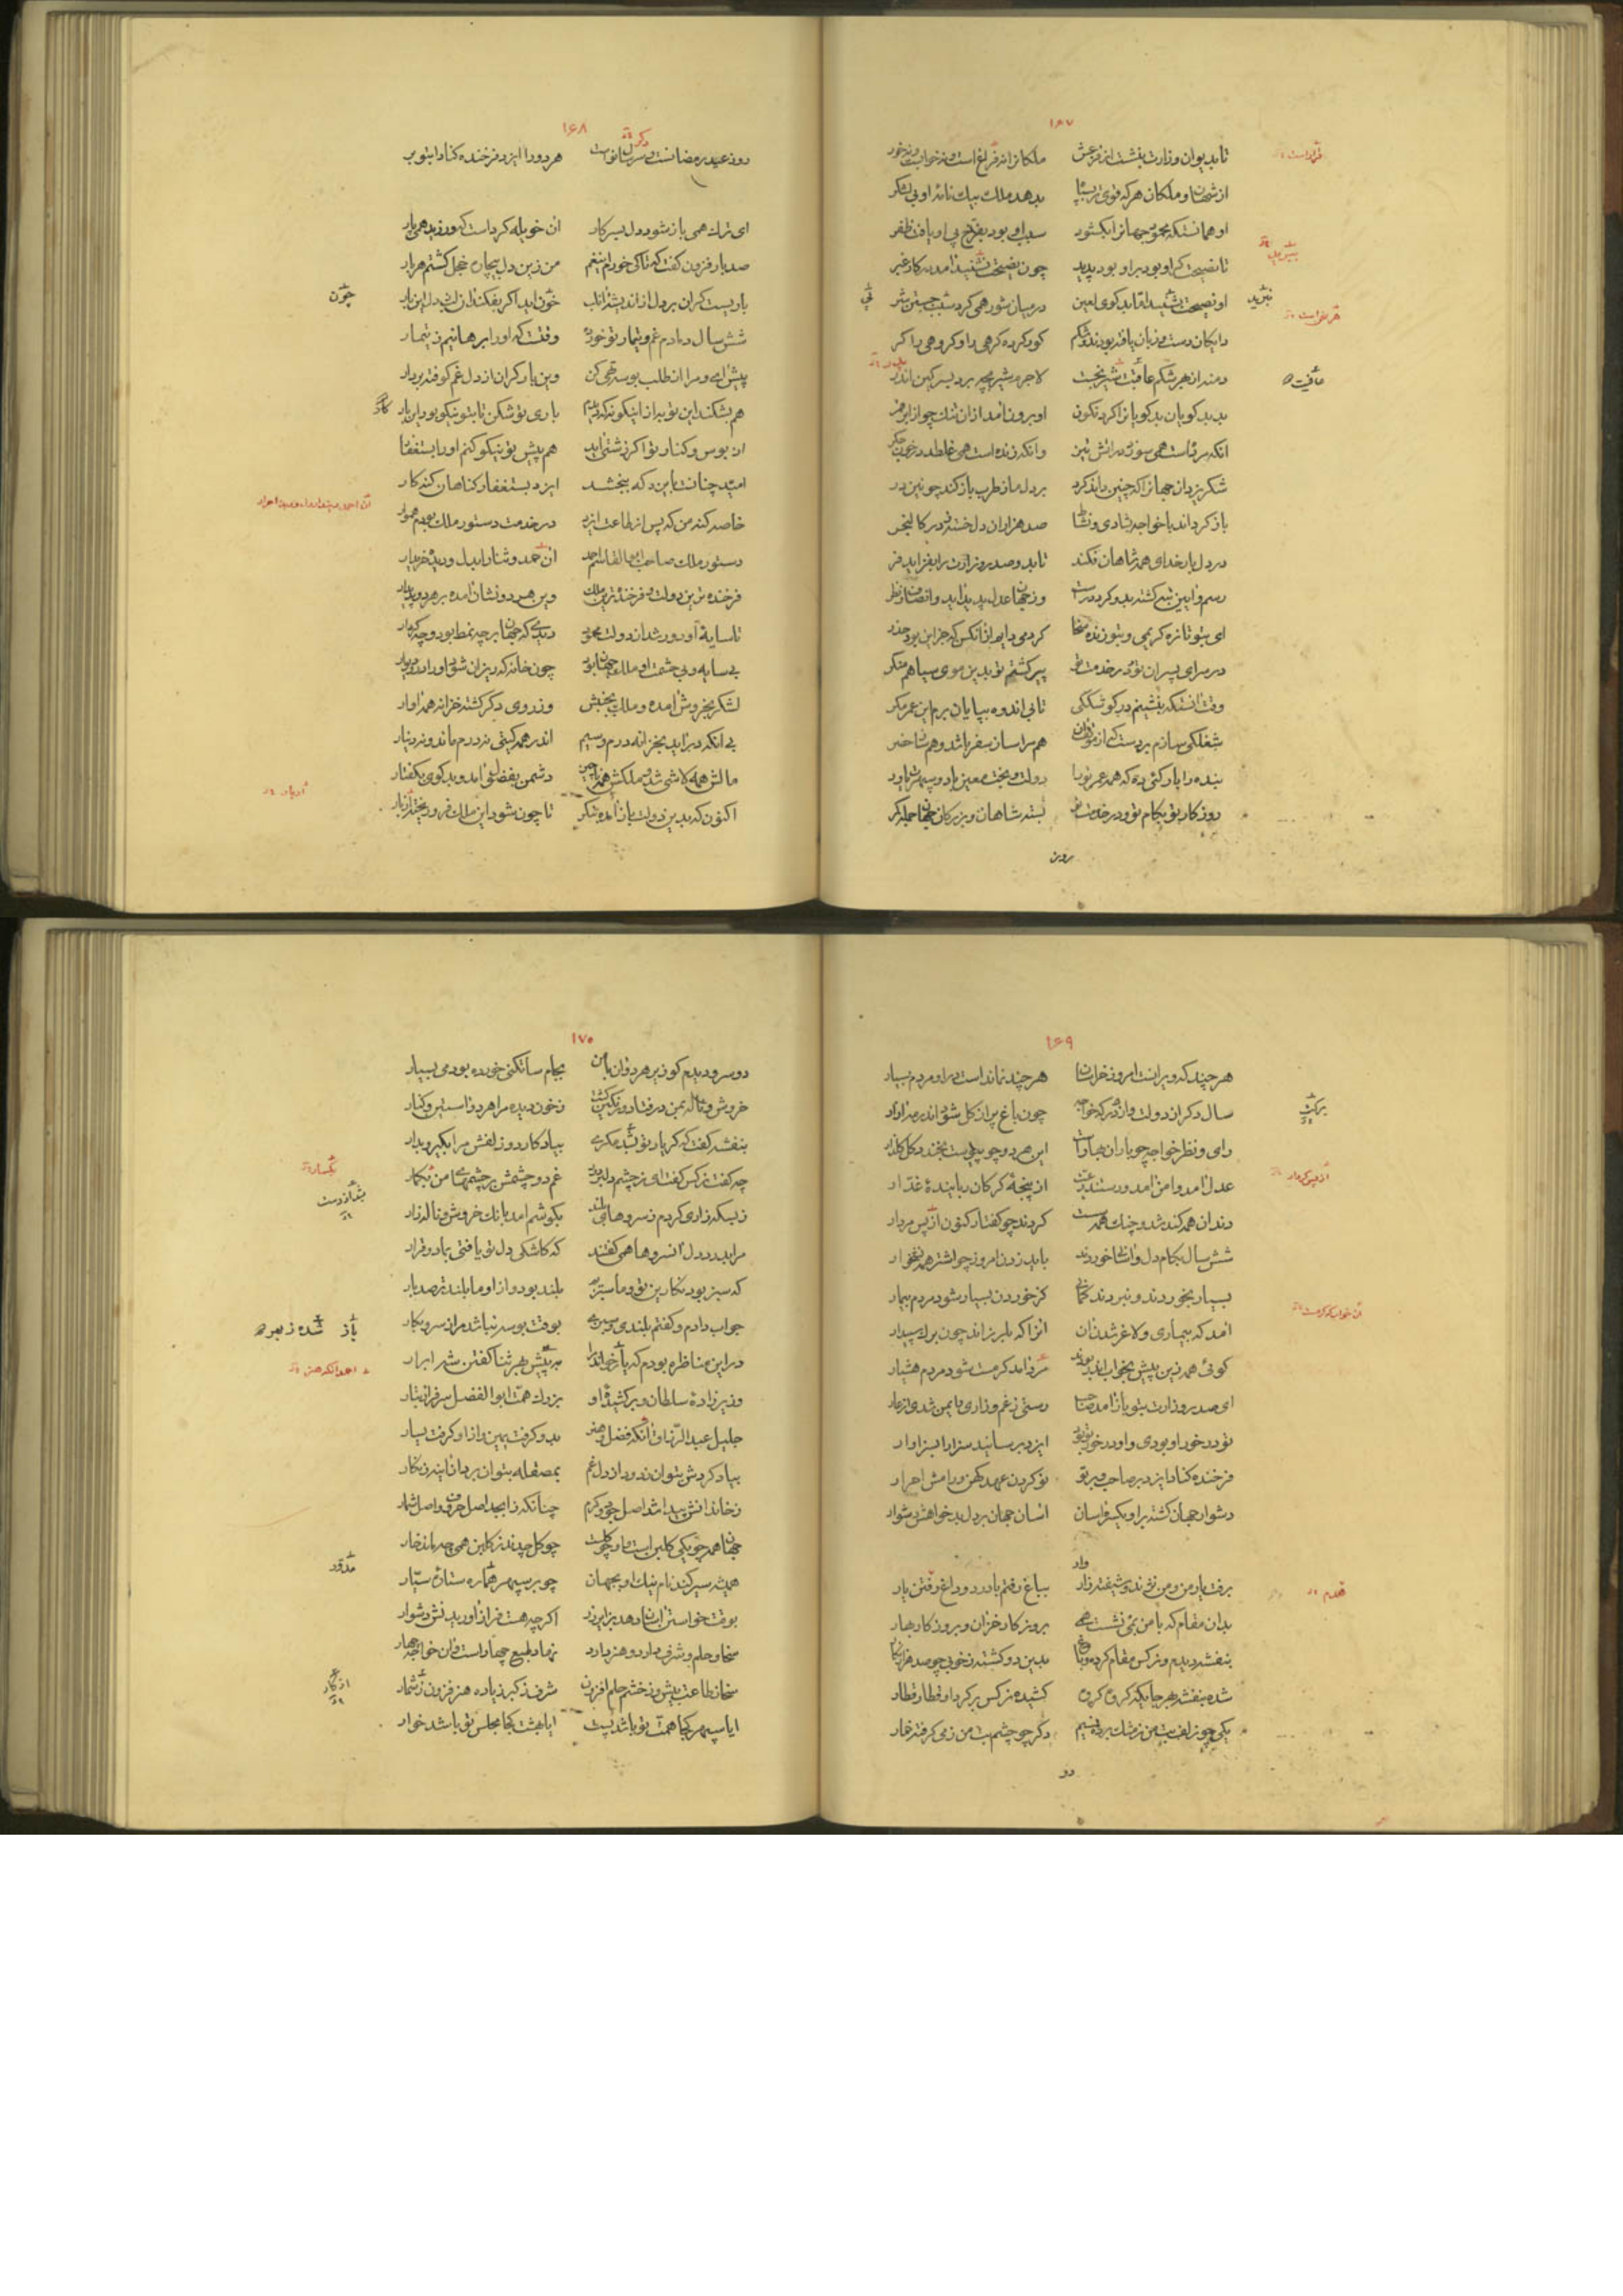 ۱۶۷
تا بدیوان وزارت بنشست از فر عش ملکانرا نه فراغ است و نه خواب و نه خور
از شهان و ملکان هر که قوی تر بسپا بدهد ملک بیک نامه او بی لشکر
او همانستکه محمود جهانرا بکشود سبب او بود بفرخ پی او یافت ظفر
تا نصیحت گر او بود بر او بود پدید چون نصیحت نشنید آمد در کار غیر
او نصیحت نشنید اماید کوی لعین در میان شور همی کرد سبب جستن شر
رایکان دست و زبان یافته بودند و شکم کور کرده کرهی را و کروهی را کر
دمنه از هر شکم عاقبت شیر بجست لاجرم شیر بر دیسر کین اندر
بد بد کویان بد کویانرا کرد نکون او برون آمد ازان تنک چو از ابر قمر
آنکه مرده است همی سوزد در آتش تیز وانکه زنده است همی غلطد در خون جکر
شکر یزدان جهانرا که چنین داند کرد بر دل ما ز طرب باز کند چونین در
باز کرداند با خواجه بشادی و نشاط صد هزاران دل خسته
در دل بار خدای همه شاهان فکند تا بدو صدر وزارت را بفزاید فر
رسم و آیین تبه کشته بدو کرد درست وز جهان عدل پدید آید و انصاف و نظر
ای بتو تازه کریمی و بتو زنده سخا کرمی دایم از آنکس که جز این بود حذر
در سرای پسران تو در خدمت تو پیر کشتم تو بدین موی سیاهم منکر
وقت آنستکه بنشینم در کوشککی تا بی اندوه بپایان برم این عمر مکر
شغلکی سازم بر دست که از موقف آن هم مرا ساز سفر باشد و هم ساز حضر
بنده را یار کئی ده که همه عمر تو را دولت و بخت معین باد و سپهرت یاور
روزکار تو بکام تو و در خدمت تو بسته شاهان و بزرکان جهان جمله کمر
روز
۱۶۸
روز عید رمضانست و سر سال نواست هر دو را ایزد فرخنده کناد ابتو بر
ای ترک همی باز شود دل بسر کار آن خو یله کرداست که ورزید همی پار
صد بار فزون کفت که تا کی خورم این غم من زین دل بیچاره خجل کشتم هربار
باریست کران بر دل از اندیشه آن لب خون آید اکر بفکند ازین دل این بار
شش سال دمادم غم و تیمار تو خورد وقتست که او را برهانیم ز تیمار
پیش آی و مرا زان طلب بوسه تهی کن وین بار کران از دل غم کوفته بردار
هم بشکند این توبه از اینکونه که دیدم باری تو شکن تا بتو نیکو بود این کار
از بوس و کنار تو اکر زشتی آید هم پیش تو نیکو کنم او را بستغفار
امید چنانست بایزد که ببخشد ایزد بستغفار کناهان کنه کار
خاصه کنه من که پس از طاعت ایزد در خدمت دستور ملک بودم هموار
دستور ملک صاحب ابو القاسم احمد آن حمد و ثنا را بدل و دیده خریدار
فرخنده ترین دولت و فرخنده ترین ملک وین هر دو نشان آمده بر هر دو پدیدار
تا سایه او دور شد از دولت محمود دیدی که جهان بر چه نمط بود و چه کردار
بی سایه و بی حشمت او ملک جهان بود چون خانه که ریزان شود او را در و دیوار
لشکر بخروش آمده و ملک بجنبش وز روی دکر کشته خزانه همه آوار
بی آنکه در آید بخزانه درم و سیم اندر همه کیتی نه درم ماند و نه دینار
مالش همه لاشی شد و ملکش همه ناچیز دشمن بفضول آمد و بدکوی بکفتار
اکنون که بدین دولت باز آمد بنکر تا چون شود این ملک فرو ریخته از بار
چون
عاقیت
۱۶۹
هر چند که ویرانست امروز خراسان هر چند نمانداست در او مردم بسیار
سال دکر از دولت و از برکه خواجه چون باغ پر از کل شود اندر مه آزار
رای و نظر خواجه چو باران بهار است این هر دو چو پیوست بخندد کل کلزار
عدل آمد و امن آمد و رستند رعیت از پنجه کرکان رباینده غدار
دندان همه کند شد و چنک همه سست کردند چو کفتار کنون از پس مردار
شش سال بکام دل و آسان خوردند باید زدن امروز چو اشتر همه نشخوار
بسیار بخوردند و نبردند کمانی کز خوردن بسیار شود مردم بیمار
آمد که بیماری و لاغر شدن آن آنرا که بلرزاند چون برک سپیدار
کوئی همه زین پیش بخواب اندر بودند زو آمد کر مست شود مردم هشیار
ای صدر وزارت بتو باز آمد صاحب رستی ز غم و زاری و ایمن شدی از عار
تو درخور او بودی و او درخور تو بود ایزد برسانید سزا را بسزاوار
فرخنده کناد ایزد بر صاحب و بر تو نو کردن عهد کهن و رامش احرار
دشوار جهان کشته بر او یکسره آسان آسان جهان بر دل بدخواهش دشوار
برفت یار من و من نژند و شیفته وار بباغ رفتم با درد و داغ رفتن یار
بدان مقام که با من بمی نشست همی بروزکار خزان و بروزکار بهار
بنفشه دیدم و نرکس مقام کرده بباغ بدین دو کشته ز خوبی چو صد هزار نکار
شده بنفشه بهر جایکه کروه کروه کشیده نرکس بر کرد او قطار قطار
یکی چو زلف بت من ز مشک برده نسیم دکر چو چشم بت من ز می کرفته خمار
دو
۱۷۰
دو سرو دیدم کو زیر هر دوان با من بجام ساتکنی خورده بودمی بسیار
خروش و ناله بمن در فتاد و رنکین کشت ز خون دیده مرا هر دو آستین و کنار
بنفشه کفت که کر یار تو بشد مکری بیادکار دو زلفش مرا بکیر و بدار
چه کفت نرکس کفت ای ز چشم دلبر دور غم دو چشمش بر چشمهای من بکمار
ز بسکه زاری کردم ز سروهای بلند بکوشم آمد بانک خروش و ناله زار
مرا بدرد دل آن سروها همی کفتند که کاشکی دل تو یافتی بما دو قرار
که سبز بود نکارین تو و ما سبزیم بلند بود و از او ما بلندتر صدبار
جواب دادم و کفتم بلندی و سبزی بوقت بوسه نباشد مرا ز سرو بکار
در این مناظره بودم که باز خواند مرا به پیش بهر ثنا کفتن شه ابرار
وزیرزاده سلطان و برکشیده او بزرک همت ابو الفضل سرفراز تبار
جلیل عبد الرزاق آنکه فضل و هنر بدو کرفت یمین و از او کرفت یسار
بیاد کردش بتوان زدود از دل غم بمصقله بتوان برد از آینه زنکار
ز خاندانش پیدا شد اصل جود و کرم چنانکه ز ابجد اصل حروف و اصل شمار
جهان همه چو یکی کلبن است و او چو کلست چو کل چیدند ز کلبن همی چه ماند خار
همیشه سیر کند نام نیک او بجهان چو بر سپهر هماره ستاره سیار
بوقت خواستن آسان دهد بزایر زر اکرچه هست فراز آوریدنش دشوار
سخا و حلم و شرف دارد و هنر دارد نه چهار طبع چهار است و آن خواجه چهار
سخا ز طاعت بیش و ز خشم حلم افزون شرف ز کبر زیاده هنر فزون ز شمار
ایا سپهر کجا همت تو باشد پست ایا بهشت کجا مجلس تو باشد خوار